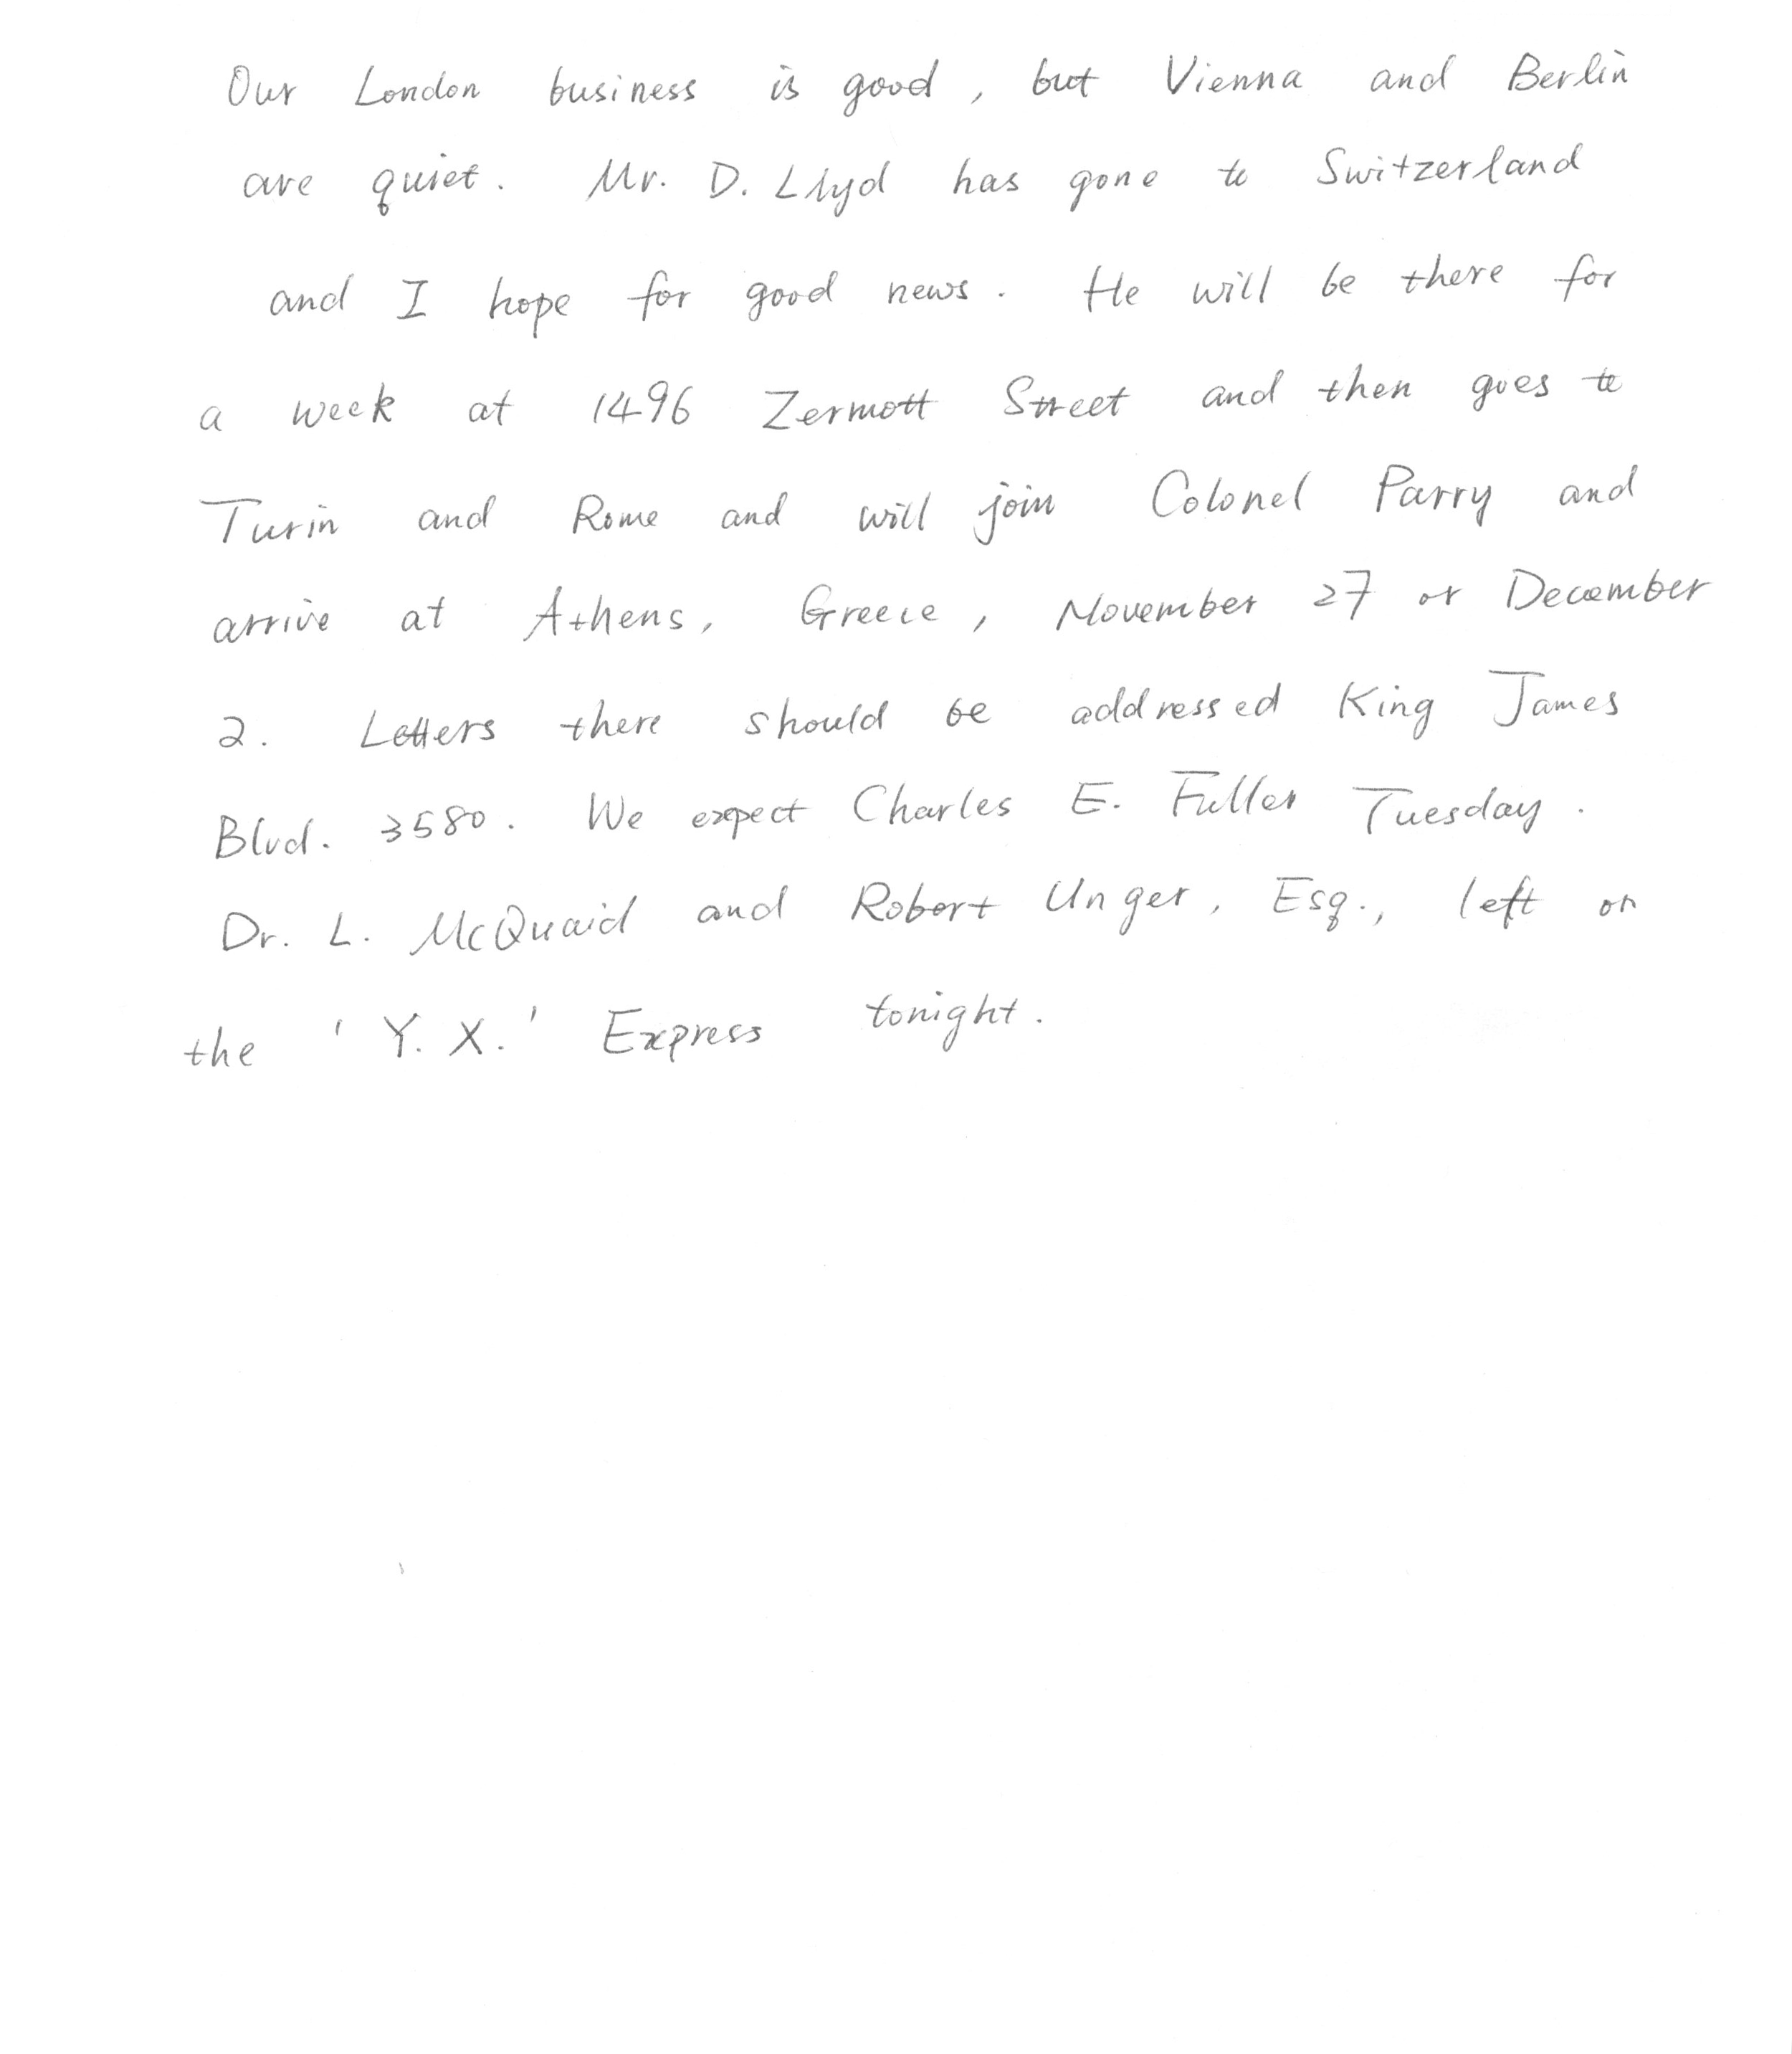 Our London business is good, but Vienna and Berlin
are quiet. Mr. D. Llyd has gone to Switzerland
and I hope for good news. He will be there for
a week at 1496 Zermott Street and then goes to
Turin and Rome and will join Colonel Parry and
arrive at Athens, Greece, November 27 or December
2. Letters there should be addressed King James
Blvd. 3580. We expect Charles E. Fuller Tuesday.
Dr. L. McQuaid and Robert Unger, Esq., left on
the 'Y. X.' Express tonight.